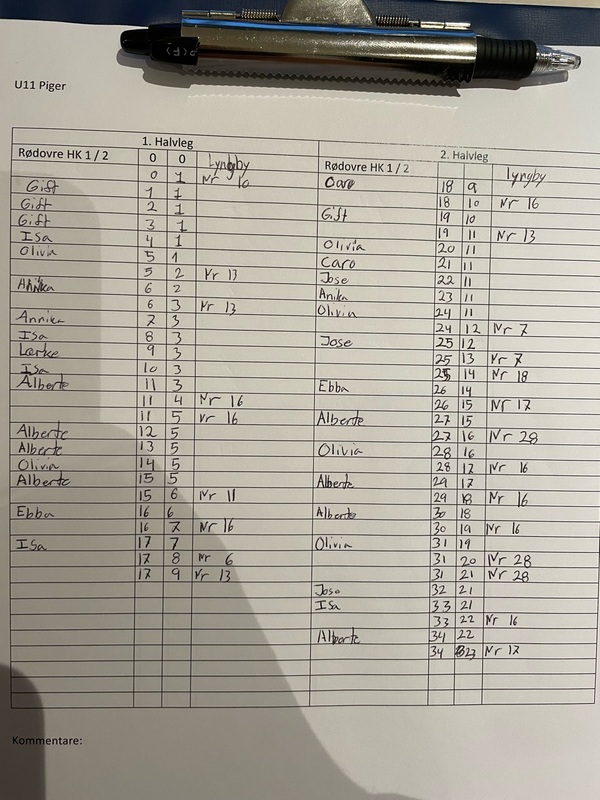 U11 Piger
1. Halvleg
Rødovre HK 1 / 2 0 0 Lyngby
0 1 Nr 10
Gift 1 1
Gift 2 1
Gift 3 1
Isa 4 1
Olivia 5 1
5 2 Nr 13
Annika 6 2
6 3 Nr 13
Annika 7 3
Isa 8 3
Lærke 9 3
Isa 10 3
Alberte 11 3
11 4 Nr 16
11 5 Nr 16
Alberte 12 5
Alberte 13 5
Olivia 14 5
Alberte 15 5
15 6 Nr 11
Ebba 16 6
16 7 Nr 16
Isa 17 7
17 8 Nr 6
17 9 Nr 13
2. Halvleg
Rødovre HK 1 / 2 Lyngby
Caro 18 9
18 10 Nr 16
Gift 19 10
19 11 Nr 13
Olivia 20 11
Caro 21 11
Jose 22 11
Anika 23 11
Olivia 24 11
24 12 Nr 7
Jose 25 12
25 13 Nr 7
25 14 Nr 18
Ebba 26 14
26 15 Nr 17
Alberte 27 15
27 16 Nr 28
Olivia 28 16
28 17 Nr 16
Alberte 29 17
29 18 Nr 16
Alberte 30 18
30 19 Nr 16
Olivia 31 19
31 20 Nr 28
31 21 Nr 28
Jose 32 21
Isa 33 21
33 22 Nr 16
Alberte 34 22
34 23 Nr 17
Kommentare: